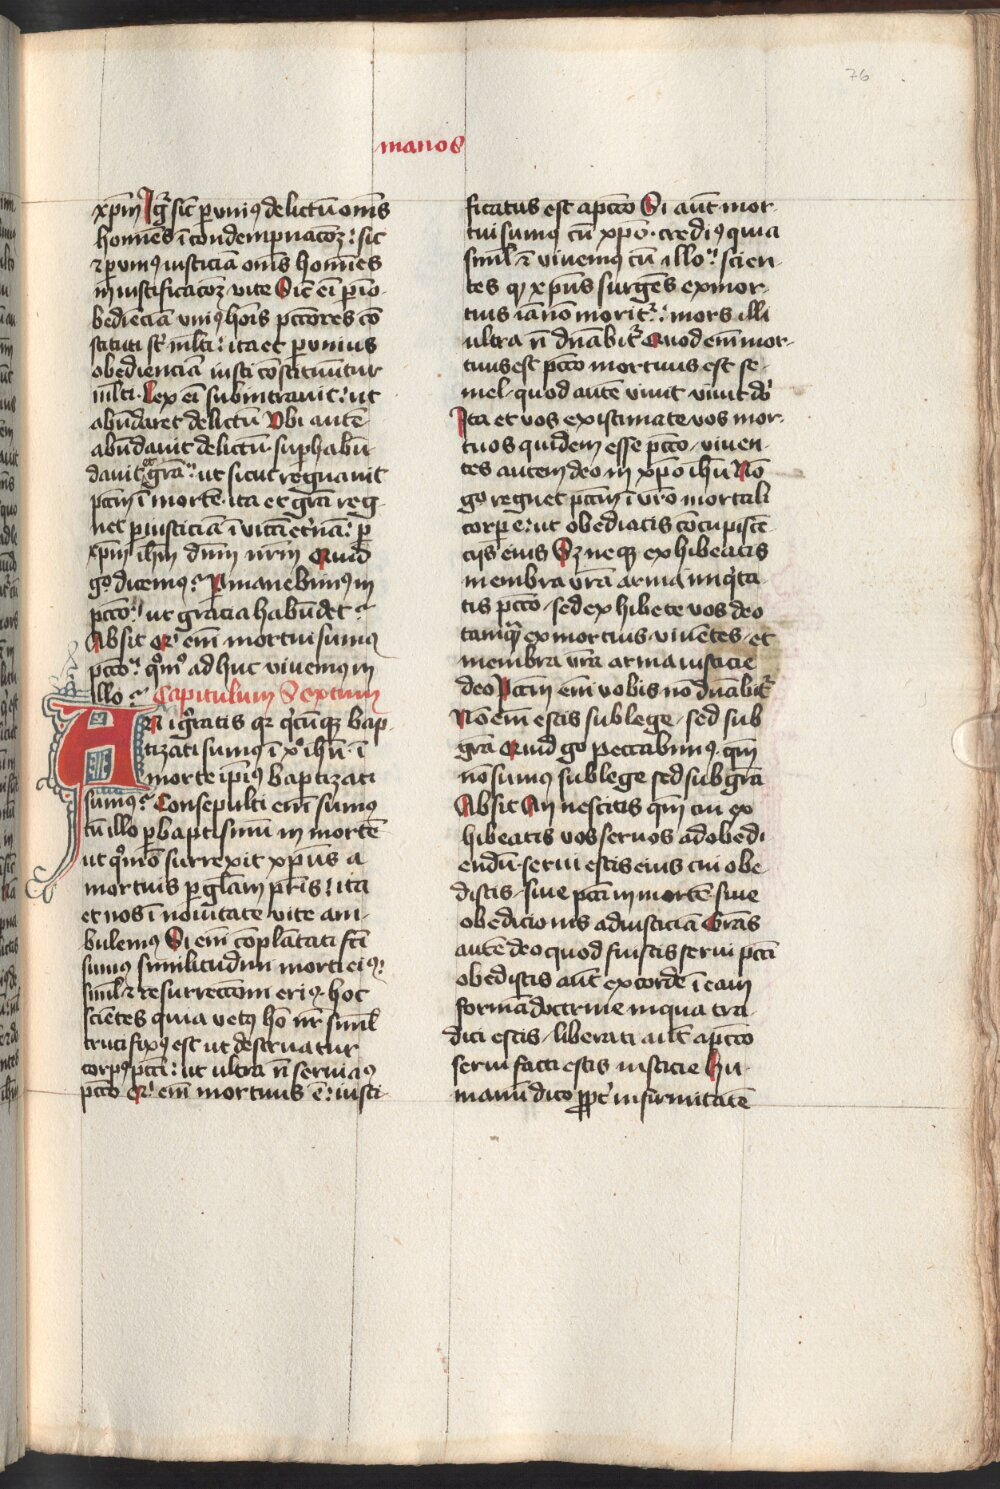 76
manos
xp̄m Igr̄ sic̄ ꝑ vniꝰ delictū om̄s
homīes ī condempnacōꝫ : sic
⁊ ꝑ vniꝰ iusticiā om̄s homīes
in iustificacōꝫ vite Sic̄ eī ꝑ īo
bediēciā vniꝰ hoīs pctōres cō
stituti st̄ mlti : ita et ꝑ vnius
obedienciā iusti cōstituūtur
mlti · Lex eī subintrauit : ut
abūdaret delictū Vbi autē
abūdauit delictū · suꝑhabū
dauit et grā : ut sicut regnauit
pctm̄ ī mortē · ita et grā reg
net ꝑ iusticiā ī vitā et̄nā : ꝑ
xp̄m ih̄m dn̄m nr̄m Quid
go dicemꝰ ? Pmanebimꝰ in
pctō : ut gracia habūdet ?
Absit Qi em̄ mortui sumꝰ
pctō : qͦmͦ adhuc viuemꝰ in
illo ? Capitulum Sextum
An igr̄atis qr qͥcūqꝫ bap
tizati sumꝰ ī xͦ ih̄u · ī
morte ip̄iꝰ baptizati
sumꝰ ? Consepulti em̄ sumꝰ
cū illo ꝑ baptismū in mortē
ut qͦmō surrexit xp̄us a
mortuis ꝑ gl̄am pr̄is : ita
et nos ī nouitate vite am-
bulemꝰ Si em̄ cōplātati fc̄i
sumꝰ similitudini morti eiꝰ :
siml̄ ⁊ resurrectōni erimꝰ · hoc
sciētes quia vetꝰ hō nr̄ siml̄
crucifixꝰ est ut destruatur
corpꝰ pcti : ut ultra n̄ seruiamꝰ
pctō Qi em̄ mortuus ē : iusti-
ficatus est a pctō Si aūt mor-
tui sumꝰ cū xp̄o · credimꝰ quia
siml̄ ⁊ viuemꝰ cū illo : scien-
tes qꝫ xp̄us surgēs ex mor-
tuis iā nō moritr : mors illi
ultra n̄ dn̄abitr Quod em̄ mor-
tuus est pctō mortuus est se-
mel · quod autē viuit viuit dō
Ita et vos existimate vos mor-
tuos quidem esse pctō · viuen-
tes autem deo in xp̄o ih̄u Nō
go regnet pctm̄ ī vr̄o mortali
corpe : ut obediatis cōcupiscē
ciis eius Sꝫ neqꝫ exhibeatis
membra vr̄a arma iniqͥta
tis pctō · sed exhibete vos deo
tamqͣ̄ ex mortuis viuētes · et
membra vr̄a arma iusticie
deo Pctm̄ em̄ vobis nō dn̄abitr
Nō em̄ estis sub lege · sed sub
grā Quid go peccabimꝰ · qm̄
nō sumꝰ sub lege sed sub grā
Absit An nescitis qm̄ cui ex
hibeatis vos seruos ad obedi-
endū · serui estis eius cui obe-
distis · siue pcti in mortē · siue
obedicionis ad iusticiā Grās
autē deo quod fuistis serui pcti
obedistis aūt ex corde ī eam
formā doctrine in qua tra-
diti estis · liberati aūt a pctō
serui facti estis iusticie Hu-
manū dico ꝓpt̄ infirmitatē